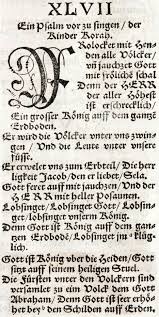 XLVII
Ein Psalm vor zu singen / der
Kinder Korah.
FRolocket mit Hen-
den alle Völcker /
vñ jauchzet Gott
mit frölichē schal
Denn der HERR
der aller Höhest
ist erschrecklich /
Ein grosser König auff dem gantzē
Erdboden.
Er wird die Völcker vnter vns zwin-
gen / Vnd die Leute vnter vnsere
füsse.
Er erwelet vns zum Erbteil / Die her
ligkeit Jacob / den er liebet / Sela.
Gott feret auff mit jauchzen / Vnd der
HERR mit heller Posaunen.
Lobsinget / Lobsinget Gott / Lobsin-
get / lobsinget vnserm König.
Denn Gott ist König auff dem gan-
tzen Erdbodē / Lobsinget jm klüg-
lich.
Gott ist König vber die Heiden / Gott
sitzt auff seinem heiligen Stuel.
Die Fürsten vnter den Völckern sind
versamlet zu eim Volck dem Gott
Abraham / Denn Gott ist seer erhö-
het bey den Schilden auff Erden.